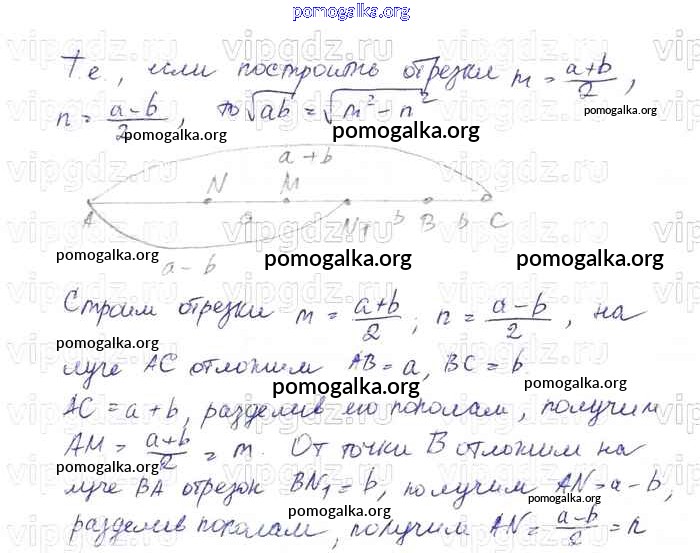 pomogalka.org
Т.е., если построить отрезки m = (a+b)/2,
n = (a-b)/2, то √ab = √(m² - n²)
pomogalka.org pomogalka.org
a+b
A N M N₁ B C
a b b
a-b
pomogalka.org pomogalka.org pomogalka.org
Строим отрезки m = (a+b)/2; n = (a-b)/2, на
pomogalka.org
луче AC отложим AB = a, BC = b
pomogalka.org pomogalka.org
AC = a+b, разделив его пополам, получим
AM = (a+b)/2 = m. От точки B отложим на
pomogalka.org
луче BA отрезок BN₁ = b, получим AN = a-b,
pomogalka.org
разделив пополам, получим AN = (a-b)/2 = n
pomogalka.org
vipgdz.ru